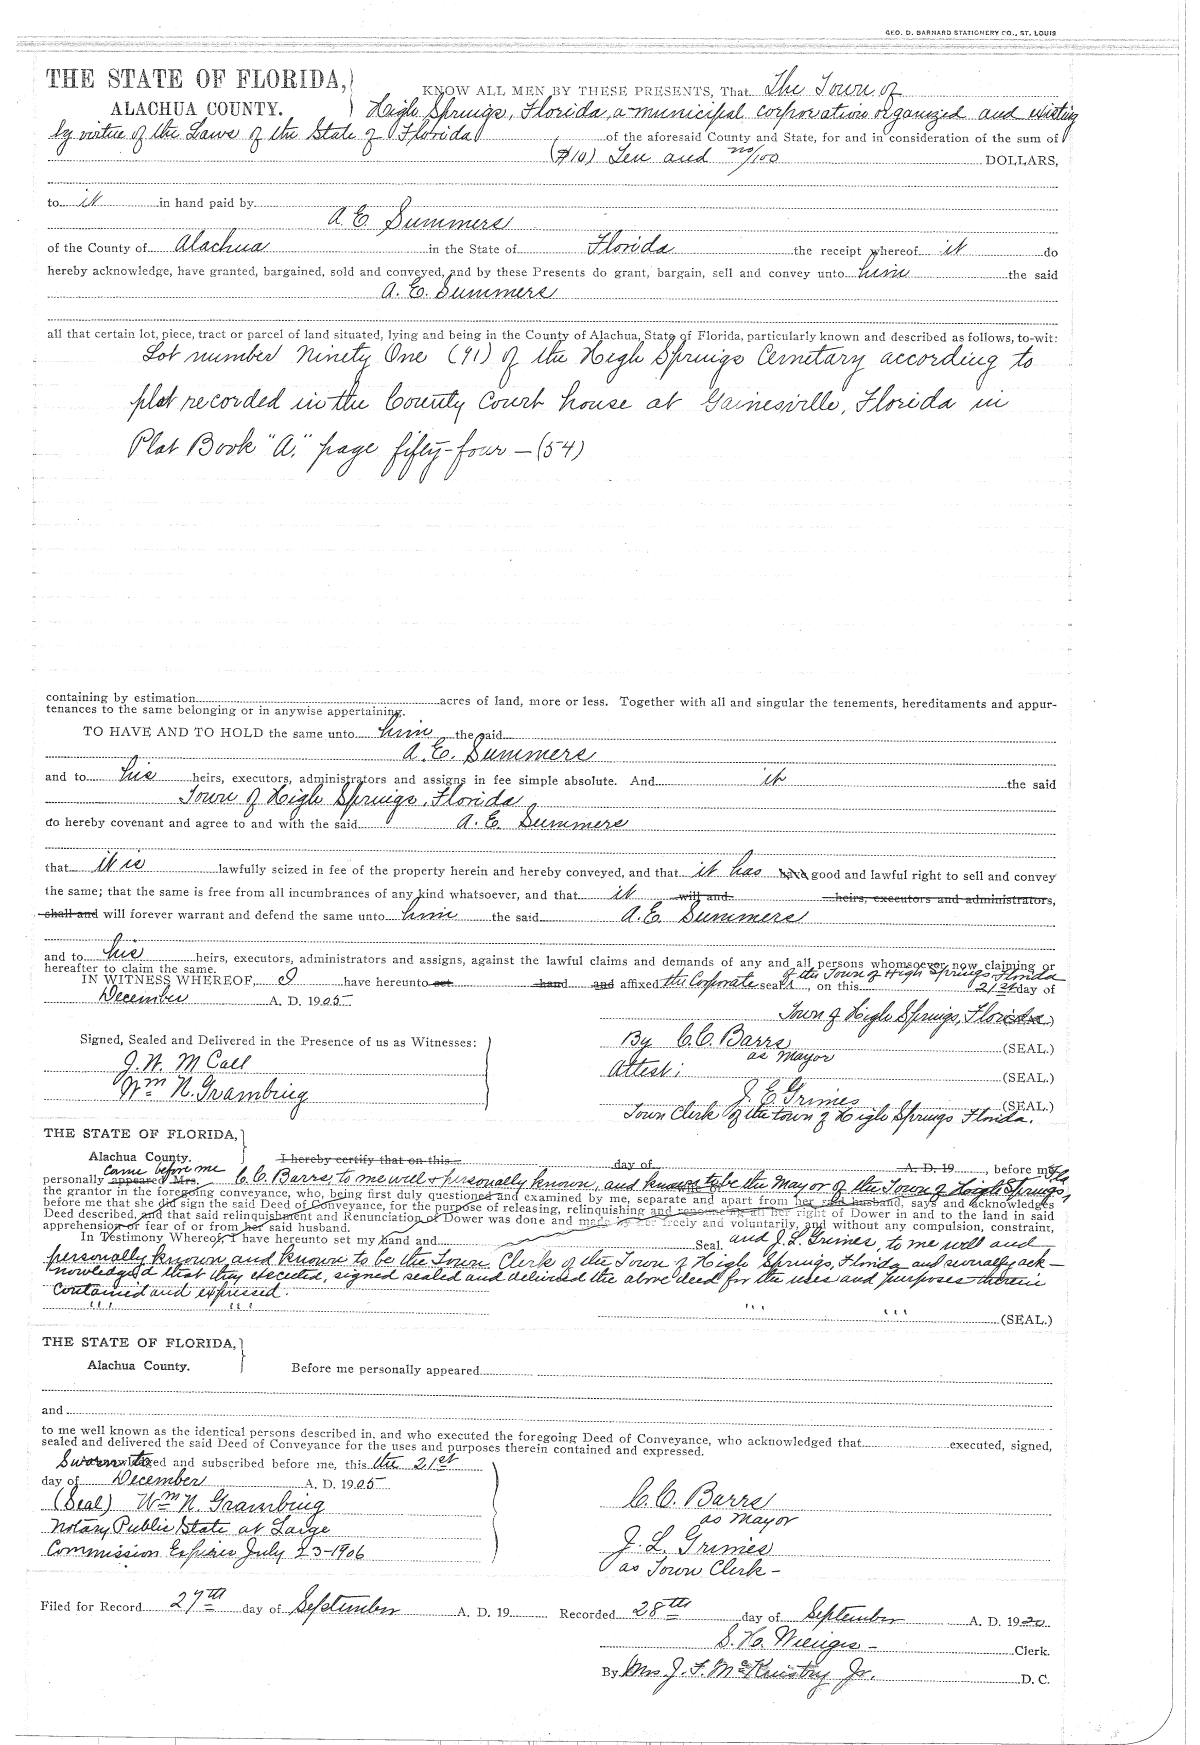 GEO. D. BARNARD STATIONERY CO., ST. LOUIS
THE STATE OF FLORIDA,
ALACHUA COUNTY.
KNOW ALL MEN BY THESE PRESENTS, That The Town of
High Springs, Florida, a municipal corporation organized and existing
by virtue of the Laws of the State of Florida of the aforesaid County and State, for and in consideration of the sum of
($10) Ten and no/100 DOLLARS,
to it in hand paid by
A. E. Summers
of the County of Alachua in the State of Florida the receipt whereof it do
hereby acknowledge, have granted, bargained, sold and conveyed, and by these Presents do grant, bargain, sell and convey unto him the said
A. E. Summers
all that certain lot, piece, tract or parcel of land situated, lying and being in the County of Alachua, State of Florida, particularly known and described as follows, to-wit:
Lot number Ninety One (91) of the High Springs Cemetary according to
plat recorded in the County Court house at Gainesville, Florida in
Plat Book "A," page fifty-four - (54)
containing by estimation acres of land, more or less. Together with all and singular the tenements, hereditaments and appur-
tenances to the same belonging or in anywise appertaining.
TO HAVE AND TO HOLD the same unto him the said
A. E. Summers
and to his heirs, executors, administrators and assigns in fee simple absolute. And it the said
Town of High Springs, Florida
do hereby covenant and agree to and with the said A. E. Summers
that it is lawfully seized in fee of the property herein and hereby conveyed, and that it has have good and lawful right to sell and convey
the same; that the same is free from all incumbrances of any kind whatsoever, and that it will and heirs, executors and administrators,
shall and will forever warrant and defend the same unto him the said A. E. Summers
and to his heirs, executors, administrators and assigns, against the lawful claims and demands of any and all persons whomsoever now claiming or
hereafter to claim the same. of the Town of High Springs, Florida
IN WITNESS WHEREOF, I have hereunto set hand and affixed the Corporate seal, on this 21st day of
December A. D. 1905
Town of High Springs, Florida (SEAL.)
Signed, Sealed and Delivered in the Presence of us as Witnesses:
By C. C. Barrs (SEAL.)
as Mayor
J. W. McCall
Attest: (SEAL.)
Wm N. Grambling
J. E. Grimes (SEAL.)
Town Clerk of the town of High Springs Florida.
THE STATE OF FLORIDA,
Alachua County. I hereby certify that on this day of A. D. 19 , before me
came before me
personally appeared Mrs. C. C. Barrs, to me well & personally known, and known to be the Mayor of the Town of High Springs, Fla
the grantor in the foregoing conveyance, who, being first duly questioned and examined by me, separate and apart from her said husband, says and acknowledges
before me that she did sign the said Deed of Conveyance, for the purpose of releasing, relinquishing and renouncing all her right of Dower in and to the land in said
Deed described, and that said relinquishment and Renunciation of Dower was done and made by her freely and voluntarily, and without any compulsion, constraint,
apprehension or fear of or from her said husband.
In Testimony Whereof, I have hereunto set my hand and Seal and J. L. Grimes, to me well and
personally known and known to be the Town Clerk of the Town of High Springs, Florida and severally ack-
nowledged that they executed, signed sealed and delivered the above deed for the uses and purposes therein
contained and expressed.
(SEAL.)
THE STATE OF FLORIDA,
Alachua County. Before me personally appeared
and
to me well known as the identical persons described in, and who executed the foregoing Deed of Conveyance, who acknowledged that executed, signed,
sealed and delivered the said Deed of Conveyance for the uses and purposes therein contained and expressed.
Sworn to and subscribed before me, this the 21st
day of December A. D. 1905
(Seal) Wm N. Grambling
Notary Public State at Large
Commission Expires July 23-1906
C. C. Barrs
as Mayor
J. L. Grimes
as Town Clerk -
Filed for Record 27th day of September A. D. 19 Recorded 28th day of September A. D. 1920
S. H. Wienges - Clerk.
By Mrs. J. F. McKinstry Jr. D. C.